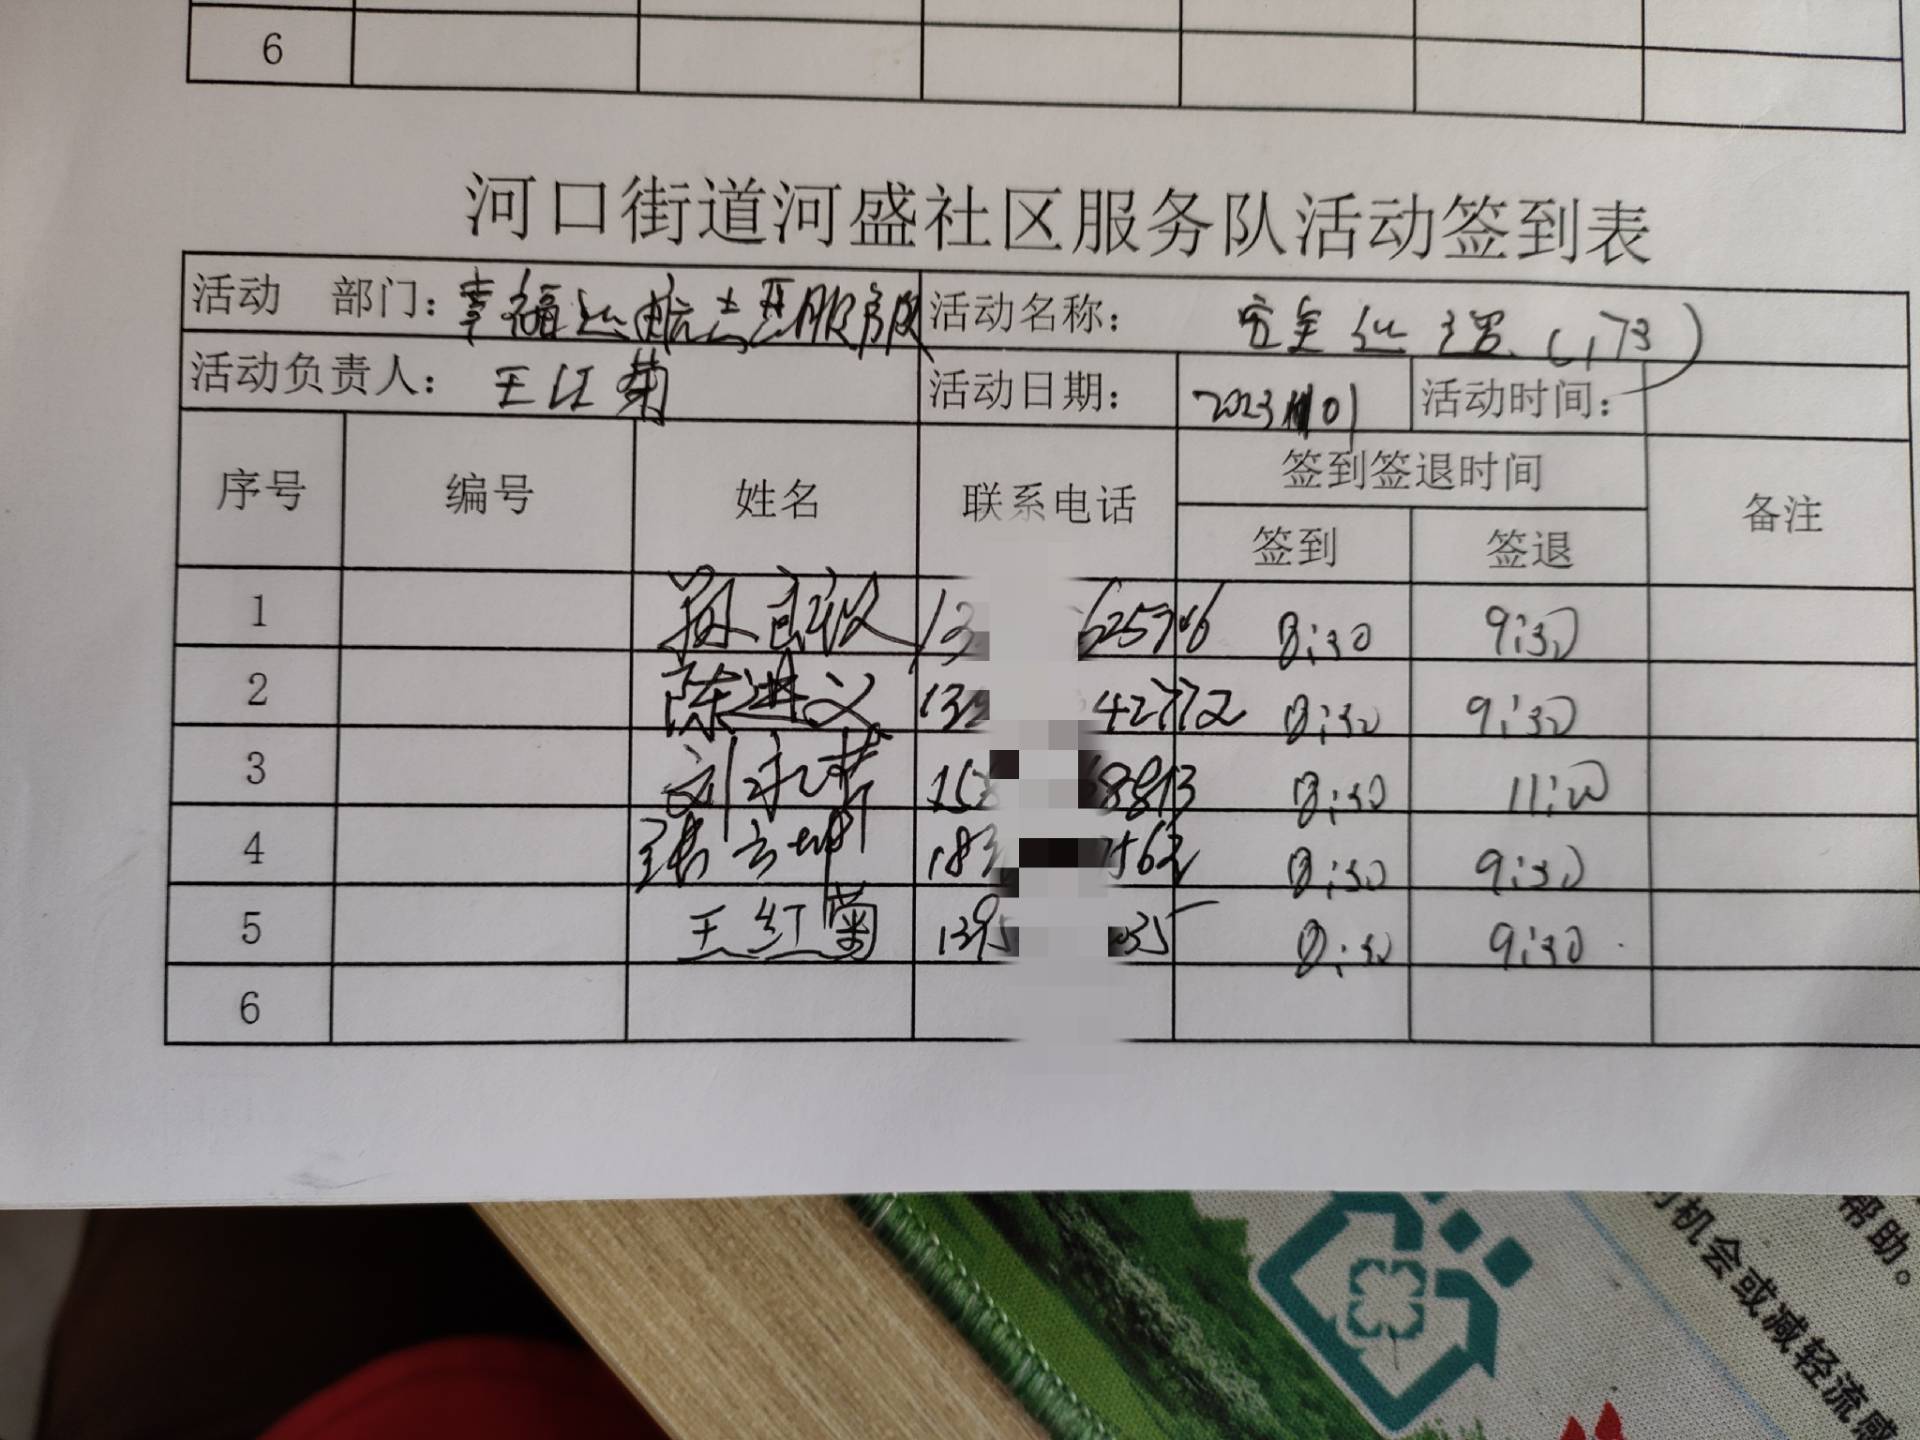 6
河口街道河盛社区服务队活动签到表
活动 部门：幸福巡航志愿服务队 活动名称：安全巡逻（173）
活动负责人：王红菊 活动日期：2023 01 活动时间：
序号 编号 姓名 联系电话 签到签退时间 备注
签到 签退
1 13 625 6 8:30 9:30
2 陈进义 13 42772 8:30 9:30
3 刘 15 8:30 11:00
4 张 183 8:30 9:30
5 王红菊 1395 35 8:30 9:30
6
帮助。
机会或减轻流感